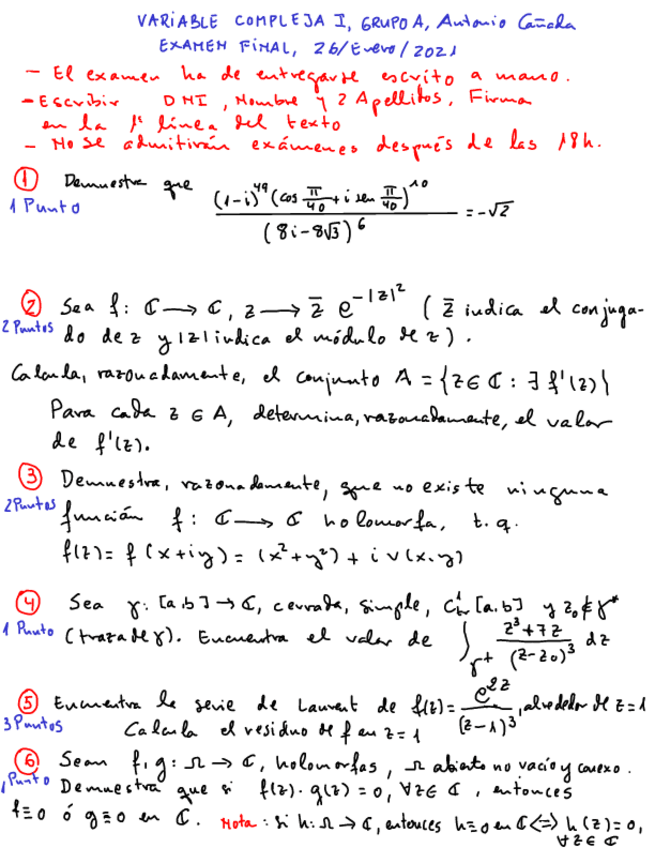 VARIABLE COMPLEJA I, GRUPO A, Antonio Cañada
EXAMEN FINAL, 26/Enero/2021
- El examen ha de entregarse escrito a mano.
- Escribir DNI, Nombre y 2 Apellidos, Firma
en la 1ª línea del texto
- No se admitirán exámenes después de las 18h.
① Demuestra que (1-i)^49 (cos π/40 + i sen π/40)^10 / (8i-8√3)^6 = -√2
1 Punto
② Sea f: ℂ → ℂ, z → z̄ e^{-|z|²} ( z̄ indica el conjuga-
2 Puntos do de z y |z| indica el módulo de z ).
Calcula, razonadamente, el conjunto A = {z ∈ ℂ : ∃ f'(z)}
Para cada z ∈ A, determina, razonadamente, el valor
de f'(z).
③ Demuestra, razonadamente, que no existe ninguna
2 Puntos función f: ℂ → ℂ holomorfa, t. q.
f(z) = f(x+iy) = (x²+y²) + i v(x,y)
④ Sea γ: [a,b] → ℂ, cerrada, simple, C¹ₜᵣ [a,b] y z₀ ∉ γ*
1 Punto (traza de γ). Encuentra el valor de ∫_{γ+} (z³+7z)/(z-z₀)³ dz
⑤ Encuentra la serie de Laurent de f(z) = e^{2z}/(z-1)³, alrededor de z=1
3 Puntos Calcula el residuo de f en z=1
⑥ Sean f,g: Ω → ℂ, holomorfas, Ω abierto no vacío y conexo.
1 Punto Demuestra que si f(z)·g(z) = 0, ∀z ∈ ℂ, entonces
f≡0 ó g≡0 en ℂ. Nota: Si h: Ω → ℂ, entonces h≡0 en ℂ <=> h(z)=0,
∀z ∈ ℂ